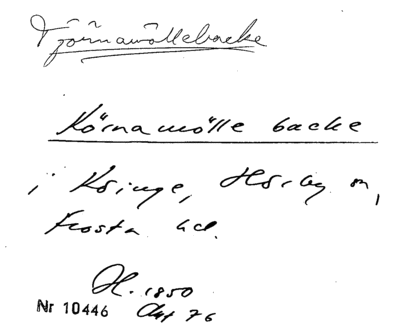 Tjörnamöllebacke
Körnamölle backe
i Köinge, Hörby sn,
Frosta hd.
H. 1850
Nr 10446 Akt 76